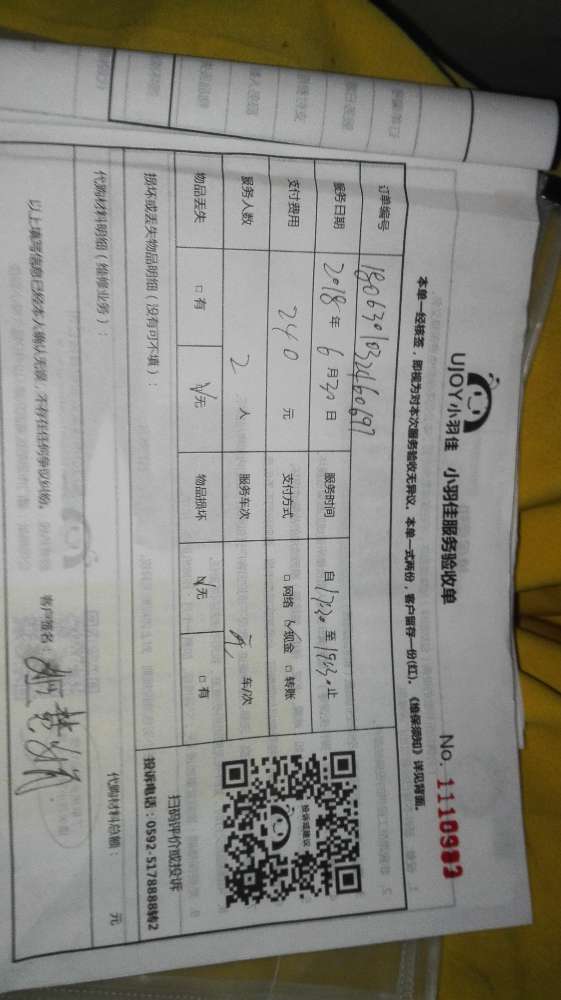 UJOY小羽佳 小羽佳服务验收单
No. 1110983
本单一经核签，即视为对本次服务验收无异议。本单一式两份，客户留存一份(红)，《维保须知》详见背面。
订单编号 1806301032460697
服务日期 2018年6月30日 服务时间 自 17:30 至 19:30 止
支付费用 240 元 支付方式 □网络 ☑现金 □转账
服务人数 2 人 服务车次 车/次
物品丢失 □有 ☑无 物品损坏 ☑无 □有
投诉或建议
扫码评价或投诉
投诉电话：0592-5178888转2
损坏或丢失物品明细（没有可不填）：
代购材料明细（维修业务）： 代购材料总额： 元
以上填写信息已经本人确认无误，不存在任何争议纠纷。 客户签名：